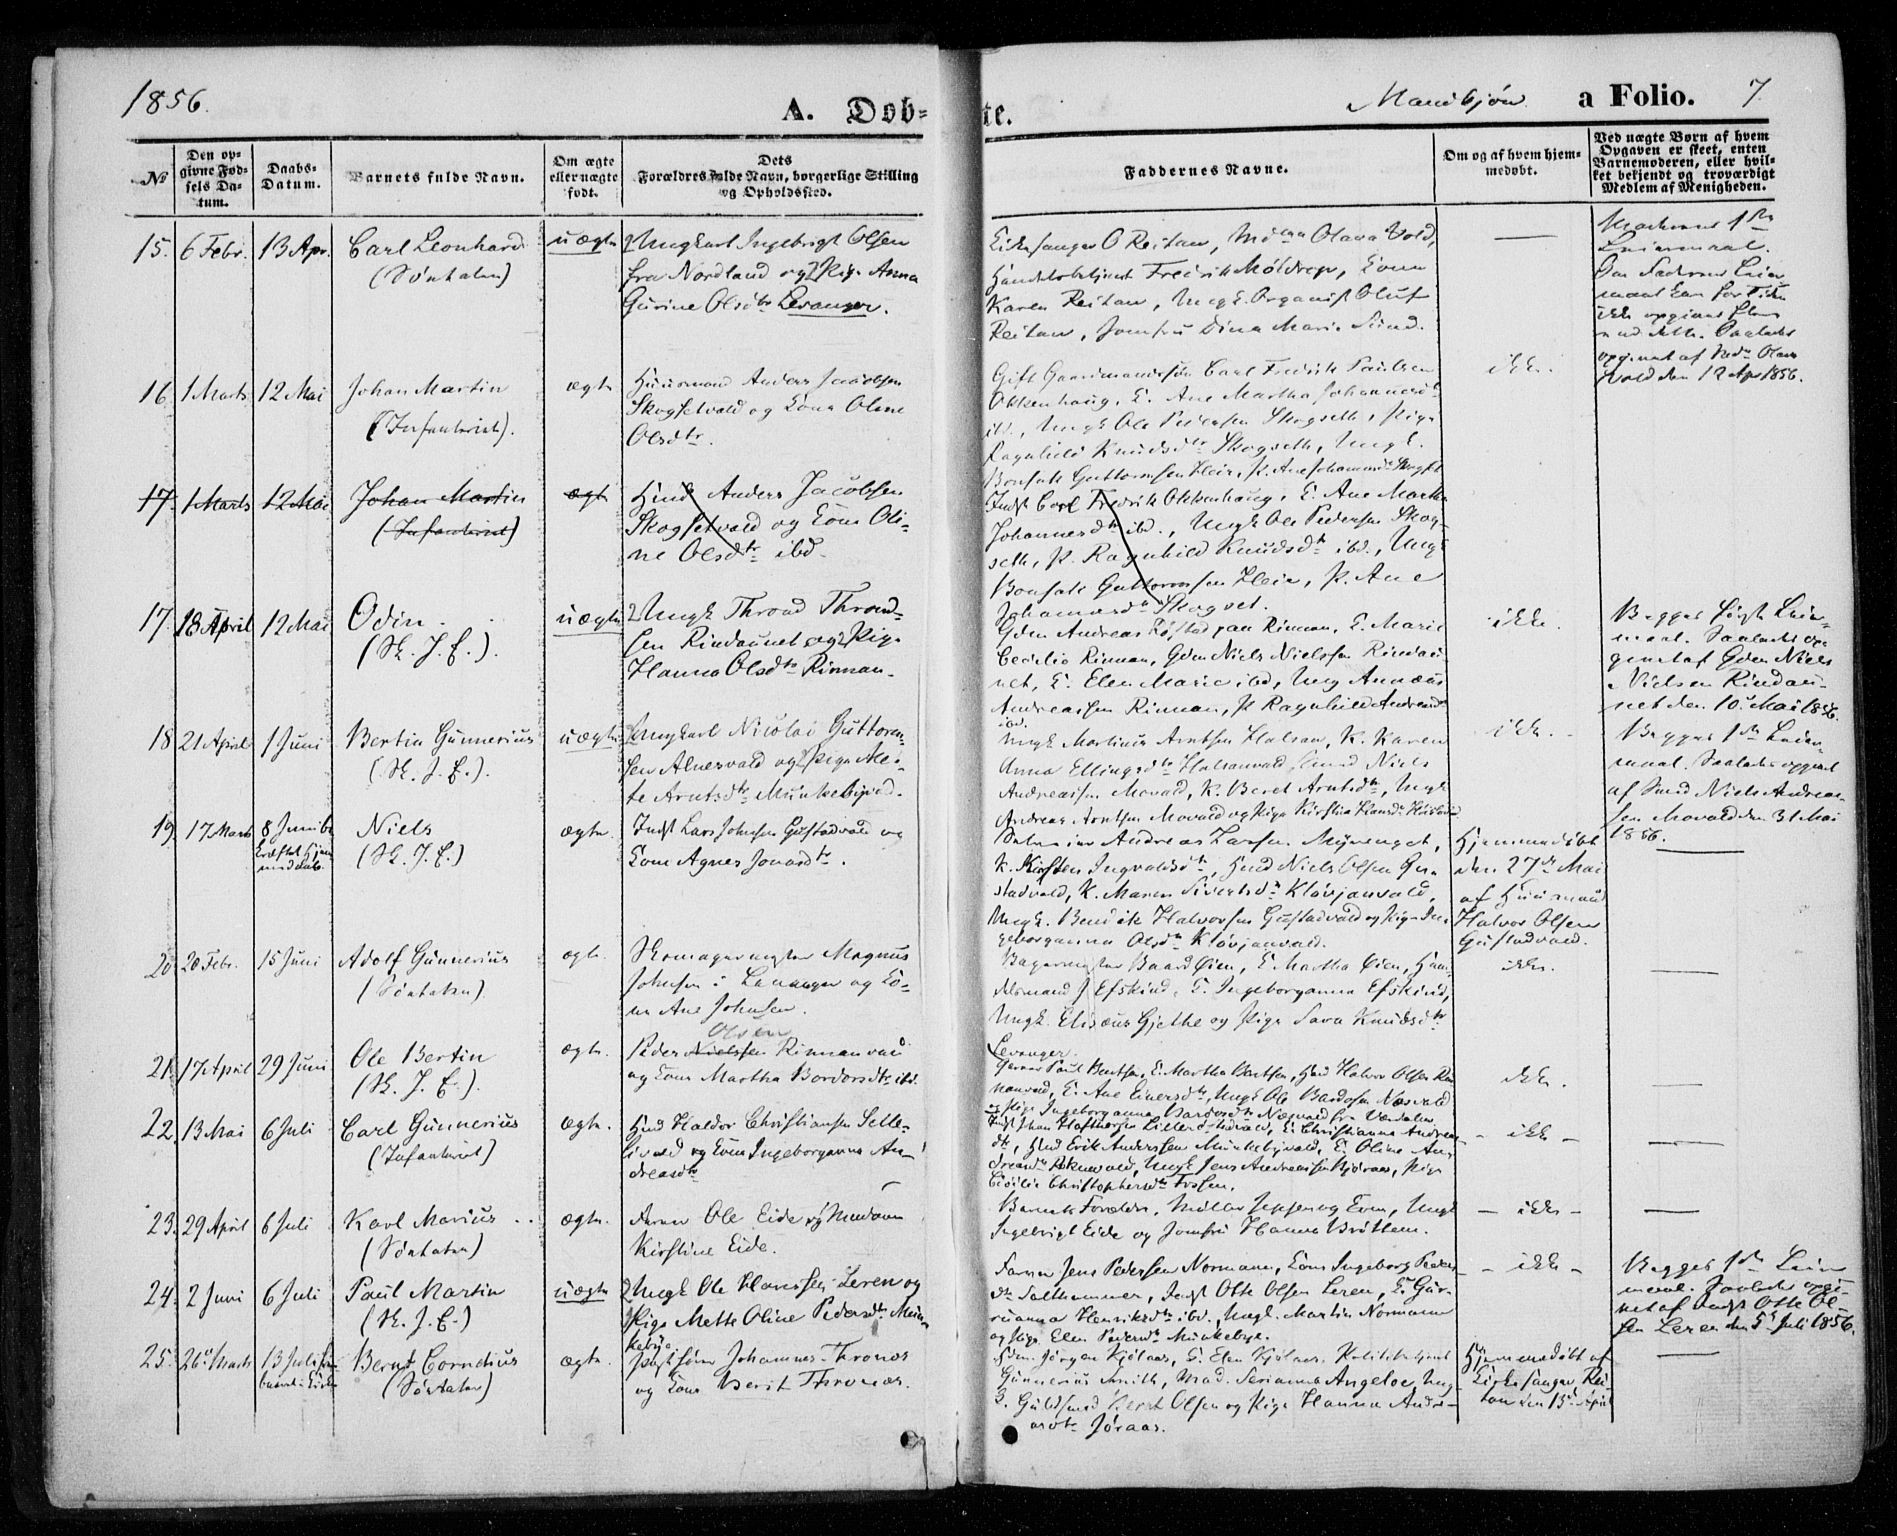 1856.
A. Døb-
te.
Mandkjøn
a Folio.
7.
No
Den op-
givne Fød-
sels Da-
tum.
Daabs-
Datum.
Barnets fulde Navn.
Om ægte
eller uægte
født.
Dets
Forældres fulde Navn, borgerlige Stilling
og Opholdssted.
Faddernes Navne.
Om og af hvem hjem-
medøbt.
Ved uægte Børn af hvem
Opgaven er skeet, enten
Barnemoderen, eller hvil-
ket bekjendt og troværdigt
Medlem af Menigheden.
15. 6 Febr. 13 Apr. Carl Leonhard uægte Ungkarl Ingebrigt Olsen
(Søntaten) fra Nordland og Pige Anna
Gurine Olsdtr Levanger.
Kirkesanger O Reitan, Olava Vold,
Handelsbetjent Fredrik Møldrep, Kone
Karen Reitan, Ungk. Organist Oluf
Reitan, Jomfru Dina Marie Lund.
Leiermaal.
ikke opgives
opgivet af Olava
Vold den 12 Apr 1856.
16 1 Marts 12 Mai Johan Martin ægte Huusmand Anders Jacobsen
(Infanteriet). Skogsetvald og Kone Oline
Olsdtr.
Gift Gaardmandssøn Carl Fredrik Paulsen
Okkenhaug, K. Ane Martha Johannesdtr
ibd., Ungk Ole Pedersen Skogseth, Pige
Ragnhild Knudsdtr Skogseth, Ungk.
Bonsak Guttormsen Heir, P. Ane Johannesdtr Skogset
ikke.
17. 1 Marts 12 Mai Johan Martin ægte Hmd Anders Jacobsen
(Infanteriet) Skogsetvald og Kone Oli-
ne Olsdtr ibd.
Indst Carl Fredrik Okkenhaug, K. Ane Martha
Johannesdtr ibd., Ungk Ole Pedersen Skog-
seth, P. Ragnhild Knudsdtr ibd., Ungk
Bonsak Guttormsen Heir, P. Ane
Johannesdtr Skogset.
17. 18 April 12 Mai Odin uægte Ungk Thrond Thrond-
(Sk. J. C.). sen Rindaunet og Pige
Hanna Olsdtr Rinnan.
Gdm Andreas Røstad paa Rinnan, K. Marie
Cecilie Rinnan, Gdm Niels Nielssen Rindau-
net, K. Elen Marie ibd, Ung Annæus
Andreassen Rinnan, P Ragnhild Andreasdtr
ibd.
ikke.
Begges første Leier-
maal. Saaledes op-
givet af Gdm Niels
Nielsen Rindau-
net den 10. Mai 1856.
18 21 April 1 Juni Bertin Gunnerius uægte Ungkarl Nicolai Guttorm-
(Sk. J. C.). sen Alnesvald og Pige Me-
te Arntsdtr Munkebyvd.
Ungk Martinus Arntsen Halsan, K. Karen
Anna Ellingsdtr Halsanvald Smed Niels
Andreassen Movald, K. Beret Arntsdtr, Ungk
Andreas Arntsen Movald og Pige Kirstine Hansdtr
ikke.
Begges 1ste Leier-
maal. Saaledes opgivet
af Smed Niels Andreas-
sen Movald den 31 Mai
1856.
19. 17 Marts 8 Juni Niels ægte Indst Lars Johnsen Gustadvald og
(Sk. J. C.) Kone Agnes Jonasdtr.
Andreas Larsen Myrenget,
K. Kirsten Ingvaldsdtr, Hmd Niels Olsen Gu-
stadvald, K. Maren Sivertsdtr Kløvjanvald,
Ungk. Bendik Halvorsen Gustadvald og Pige In-
geborganna Olsdtr Kløvjanvald.
Hjemmedøbt
den 27de Mai
af Huusmand
Halvor Olsen
Gustadvald.
20 20 Febr. 15 Juni Adolf Gunnerius ægte Skomagermester Magnus
(Søntaten) Johnsen i Levanger og Ko-
ne Ane Johnsen.
Bagermester Baard Øien, K Martha Øien, Han-
delsmand J Efskind, K. Ingeborganna Efskind,
Ungk. Elisæus Gjethe og Pige Sara Knudsdtr
Levanger.
ikke.
21. 17 April 29 Juni Ole Bertin ægte Peder Nielssen Olsen Rinnanvald
(Sk. J. C.). og Kone Martha Bordorsdtr ibd.
Garver Paul Bentsen, K. Martha Bentsen, Hmd Halvor Olsen Rin-
nanvald, K. Ane Einersdtr, Ungk Ole Bardosen Næsvald
og Pige Ingeborganna Bardosdtr Næsvald fra Værdalen
ikke.
22. 13 Mai 6 Juli Carl Gunnerius ægte. Hmd Haldor Christiansen Selle-
(Infanteriet) livald og Kone Ingeborganna An-
dreasdtr
K. Christianna Andreas-
dtr, Hmd Erik Anderssen Munkebyvald, K. Oline An-
dreasdtr, Ungk Jens Andreassen, Pige
Cicilie Christophersdtr Frosten.
- ikke -
23. 29 April 6 Juli Karl Marius ægte. Ole Eide og Madame
(Søntaten) Kirstine Eide.
Barnets Forældre, Møller Jeppsen og Kone, Ungk
Ingebrigt Eide og Jomfru Hanna Bråttem.
- ikke -
24. 2 Juni 6 Juli Paul Martin uægte Ungk Ole Hanssen Leren og
(Sk. J. C.) Pige Mette Oline Pedersdtr Mun-
kebye.
Jens Pedersen Normann, Kone Ingeborg Peders-
dtr Salthammer, Indst Otte Olsen Leren, K. Gur-
rianna Henriksdtr ibd., Ungk. Martin Normann
og Pige Elen Pedersdtr Munkebye.
- ikke -
Begges 1ste Leier-
maal. Saaledes opgi-
vet af Indst Otte Ol-
sen Leren den 5te Juli 1856.
25. 26 Marts 13 Juli Bernt Cornelius ægte. Johannes Thronæs
(Søntaten) og Kone Berit Thronæs.
Gdm. Jørgen Kjølaas, K. Elen Kjølaas. Politibetjent
Gunnerius Smith, Mad. Serianna Angeloe, Ung-
k. Guldsmed Bernt Olsen og Pige Hanna Andre-
asdtr Jøraas.
Hjemmedøbt af
Kirkesanger Rei-
tan den 15de April